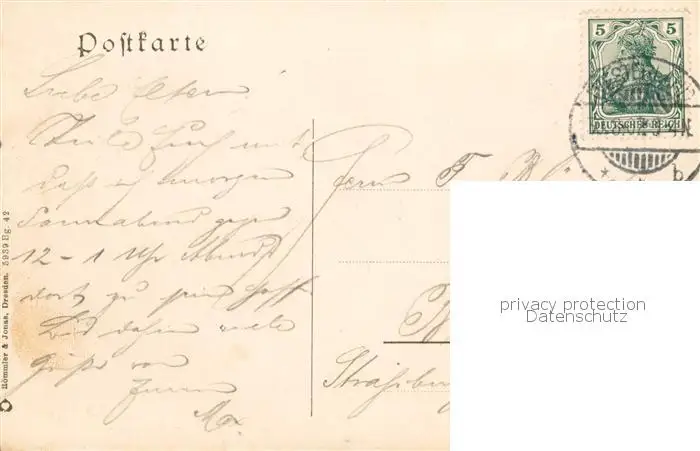 Postkarte
Liebe Eltern!
Theile Euch mit
daß ich morgen
Sonnabend gegen
12 - 1 Uhr Abends
dort zu sein hoffe
Bis dahin viele
Grüße von
Eurem
Max.
Herrn F.
Straßbur
5 5
DEUTSCHES REICH
b
Römmler & Jonas, Dresden. 5939 Bg. 42
privacy protection
Datenschutz